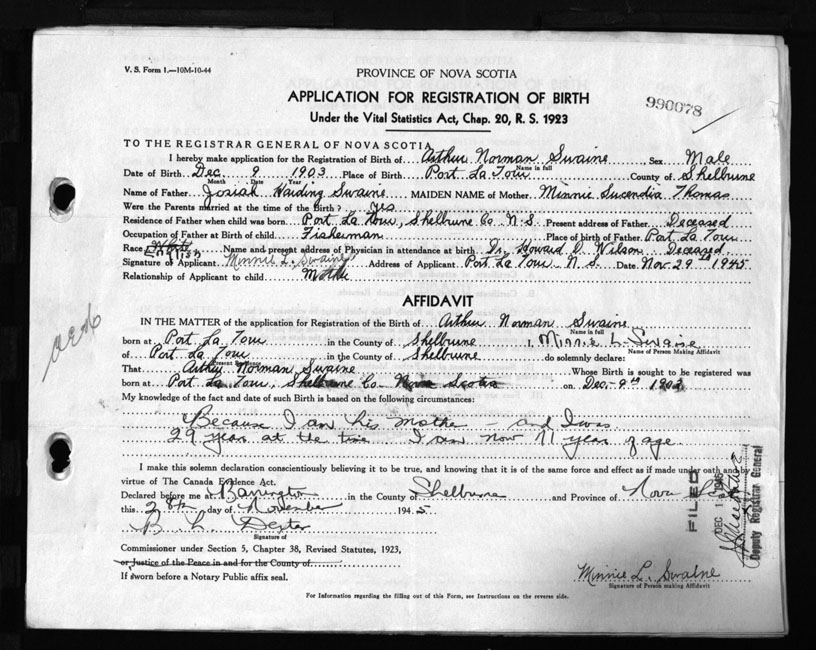 V. S. Form 1.—10M-10-44
PROVINCE OF NOVA SCOTIA
990078
APPLICATION FOR REGISTRATION OF BIRTH
Under the Vital Statistics Act, Chap. 20, R. S. 1923
TO THE REGISTRAR GENERAL OF NOVA SCOTIA
I hereby make application for the Registration of Birth of Arthur Norman Swaine Sex Male
Name in full
Date of Birth Dec 9 1903 Place of Birth Port La Tour County of Shelburne
Month Date Year
Name of Father Josiah Harding Swaine MAIDEN NAME of Mother Minnie Lucendia Thomas
Were the Parents married at the time of the Birth? yes
Residence of Father when child was born Port La Tour, Shelburne Co. N.S. Present address of Father Deceased
Occupation of Father at Birth of child Fisherman Place of birth of Father Port La Tour
Race English Name and present address of Physician in attendance at birth Dr. Howard D. Wilson Deceased
Signature of Applicant Minnie L. Swaine Address of Applicant Port La Tour N.S. Date Nov. 29th 1945
Relationship of Applicant to child Mother
AFFIDAVIT
IN THE MATTER of the application for Registration of the Birth of Arthur Norman Swaine
Name in full
born at Port La Tour in the County of Shelburne I, Minnie L. Swaine
Name of Person Making Affidavit
of Port La Tour in the County of Shelburne do solemnly declare:
Present Residence
That Arthur Norman Swaine Whose Birth is sought to be registered was
born at Port La Tour, Shelburne Co Nova Scotia on Dec. 9th 1903
My knowledge of the fact and date of such Birth is based on the following circumstances:
Because I am his mother - and I was
29 years at the time. I am now 71 years of age.
I make this solemn declaration conscientiously believing it to be true, and knowing that it is of the same force and effect as if made under oath and by
virtue of The Canada Evidence Act.
Declared before me at Barrington in the County of Shelburne and Province of Nova Scotia
this 28th day of November 1945
B. L. Dexter
Signature of
Commissioner under Section 5, Chapter 38, Revised Statutes, 1923,
or Justice of the Peace in and for the County of
If sworn before a Notary Public affix seal.
Minnie L. Swaine
Signature of Person making Affidavit
For Information regarding the filling out of this Form, see Instructions on the reverse side.
FILED
DEC 1 1945
Deputy Registrar General